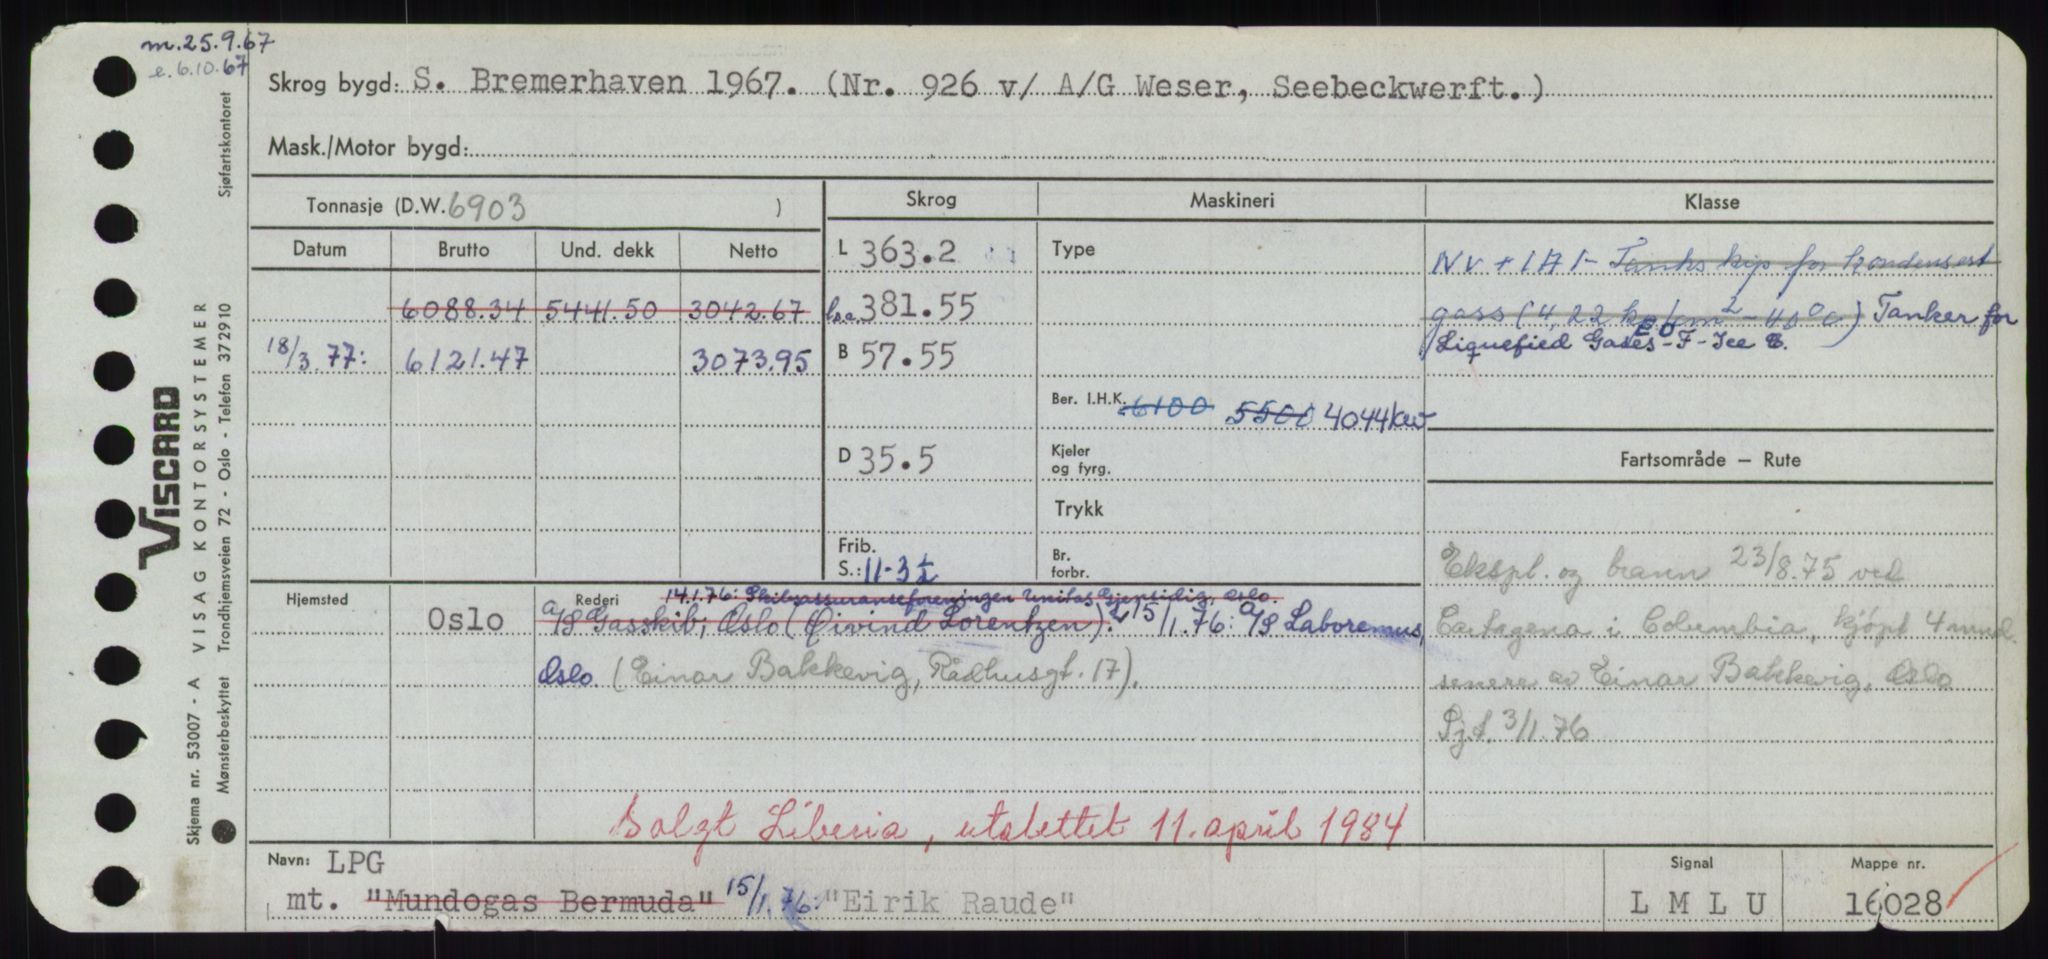 m. 25.9.67
e. 6.10.67
Skrog bygd: S. Bremerhaven 1967. (Nr. 926 v/ A/G Weser, Seebeckwerft.)
Mask./Motor bygd:
Tonnasje (D.W. 6903 )
Skrog
Maskineri
Klasse
Datum
Brutto
Und. dekk
Netto
6088.34 5441.50 3042.67
18/3.77: 6121.47 3073.95
L 363.2
loa 381.55
B 57.55
D 35.5
Frib.
S.: 11-3½
Type
Ber. I.H.K. 6100 5500 4044kw
Kjeler
og fyrg.
Trykk
Br.
forbr.
NV + 1A1- Tankskip for kondensert
gass (4,22 kg/cm² - 40°C) Tanker for
Liquefied Gases - F - Ice C.
EO
Fartsområde – Rute
Ekspl. og brann 23/8.75 ved
Cartagena i Columbia, kjöpt 4 mnd.
senere av Einar Bakkevig, Oslo
Sjt. 3/1.76
Hjemsted
Oslo
Rederi
14.1.76: Skibsassuranseforeningen Unitas Gjensidig, Oslo.
A/S Gasskib, Oslo (Øivind Lorentzen). 15/1.76: A/S Laboremus,
Oslo (Einar Bakkevig, Rådhusgt. 17).
Solgt Liberia, utslettet 11. april 1984
Navn: LPG
mt. "Mundogas Bermuda" 15/1.76: "Eirik Raude"
Signal
L M L U
Mappe nr.
16028
Skjema nr. 53007 - A VISAG KONTORSYSTEMER
Mønsterbeskyttet Trondhjemsveien 72 - Oslo - Telefon 372910 Sjøfartskontoret
VISCARD